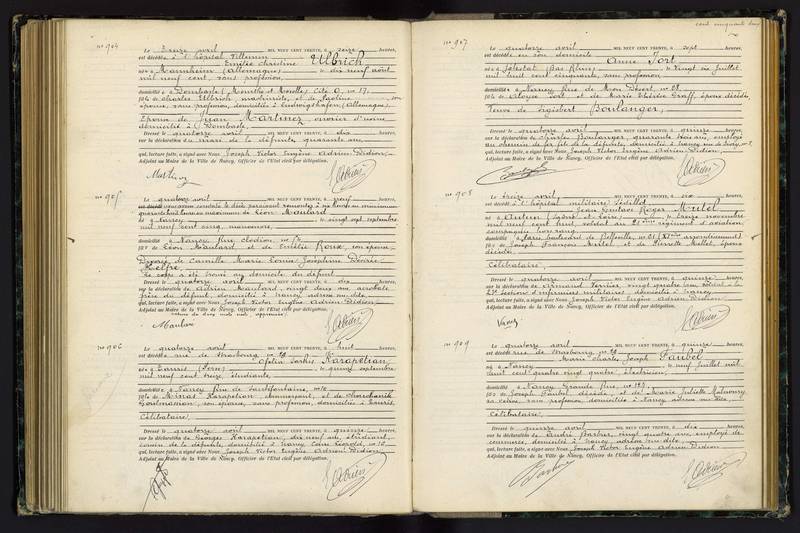 n° 904
Le treize avril MIL NEUF CENT TRENTE, à seize heures,
est décédée à l'hôpital Villemin
Emilie Christine Ulbrich
née à Mannheim (Allemagne) le dix neuf août
mil neuf cent, sans profession,
domiciliée à Dombasle (Meurthe et Moselle) Cité O, n° 17.
fille de Charles Ulbrich, machiniste, et de Pauline son
épouse, sans profession, domiciliés à Ludwigshafen (Allemagne)
Epouse de Juan Martinez, ouvrier d'usine
domicilié à Dombasle.
Dressé le quatorze avril MIL NEUF CENT TRENTE, à dix heures,
sur la déclaration du mari de la défunte, quarante ans,
qui, lecture faite, a signé avec Nous Joseph Victor Eugène Adrien Didion,
Adjoint au Maire de la Ville de Nancy, Officier de l'Etat civil par délégation.
Martinez
n° 905
Le quatorze avril MIL NEUF CENT TRENTE, à neuf heures,
Léon Maulard
né à Nancy le vingt sept septembre
mil neuf cent cinq, manœuvre,
domicilié à Nancy rue Clodion, n°
fils de Léon Maulard, et de Emilie Roux, son épouse
Divorcé de Camille Marie Louise Joséphine Désirée
Helfre.
Le corps a été trouvé au domicile du défunt.
Dressé le quatorze avril MIL NEUF CENT TRENTE, à dix heures,
sur la déclaration de Adrien Maulard, vingt deux ans, acrobate
frère du défunt, domicilié à Nancy adresse sus dite,
qui, lecture faite, a signé avec Nous Joseph Victor Eugène Adrien Didion
Adjoint au Maire de la Ville de Nancy, Officier de l'Etat civil par délégation.
Maulard
n° 906
Le quatorze avril MIL NEUF CENT TRENTE, à huit heures,
est décédée rue de Strasbourg n° 29
Ofelia Sarkis Karapetian,
née à Tauris (Perse) le quinze septembre
mil neuf cent treize, étudiante,
domiciliée à Nancy rue de Santifontaine, n° 10
fille de Minas Karapetian, commerçant, et de
son épouse, sans profession, domiciliés à Tauris.
Célibataire.
Dressé le quatorze avril MIL NEUF CENT TRENTE, à quinze heures,
sur la déclaration de Georges Karapetian, dix neuf ans, étudiant,
cousin de la défunte, domicilié à Nancy Cours Léopold, n° 10
qui, lecture faite, a signé avec Nous Joseph Victor Eugène Adrien Didion
Adjoint au Maire de la Ville de Nancy, Officier de l'Etat civil par délégation.
n° 907
Le quatorze avril MIL NEUF CENT TRENTE, à sept heures,
est décédée en son domicile
Anne Jort
née à Selestat (Bas Rhin) le vingt six juillet
mil huit cent cinquante, sans profession,
domiciliée à Nancy rue de Mon Désert, n° 28
fille de Aloyse Jort et de Marie Thérèse Graff, époux décédés.
Veuve de Sigisbert Boulanger.
Dressé le quatorze avril MIL NEUF CENT TRENTE, à quinze heures,
sur la déclaration de Charles Boulanger, quarante trois ans, employé
au chemin de fer, fils de la défunte, domicilié à Nancy
qui, lecture faite, a signé avec Nous Joseph Victor Eugène Adrien Didion,
Adjoint au Maire de la Ville de Nancy, Officier de l'Etat civil par délégation.
n° 908
Le treize avril MIL NEUF CENT TRENTE, à dix heures,
est décédé à l'hôpital militaire Sédillot
Jean Gustave Roger Mutel
né à Autun (Saône et Loire) le treize novembre
mil neuf cent huit, soldat au 21ème régiment d'aviation,
compagnie hors rang,
domicilié à Paris boulevard de Belleville,
fils de Joseph François Mutel et de Pierrette Mollet, époux
décédés.
Célibataire.
Dressé le quatorze avril MIL NEUF CENT TRENTE, à quinze heures,
sur la déclaration de Armand Vernier, vingt quatre ans, soldat à la
section d'infirmiers militaires, domicilié à Nancy
qui, lecture faite, a signé avec Nous Joseph Victor Eugène Adrien Didion
Adjoint au Maire de la Ville de Nancy, Officier de l'Etat civil par délégation.
n° 909
Le quatorze avril MIL NEUF CENT TRENTE, à quinze heures,
est décédé rue de Strasbourg n° 29
Marie Charles Joseph Faubel
né à Nancy le neuf juillet mil
huit cent quatre vingt quatre, électricien,
domicilié à Nancy Grande Rue, n° 123
fils de Joseph Faubel décédé, et de Marie Juliette Malnoury
sa veuve, sans profession, domiciliée à Nancy adresse sus dite.
Célibataire.
Dressé le quinze avril MIL NEUF CENT TRENTE, à dix heures,
sur la déclaration de André Barbier, vingt quatre ans, employé de
commerce, domicilié à Nancy, adresse sus dite
qui, lecture faite, a signé avec Nous Joseph Victor Eugène Adrien Didion
Adjoint au Maire de la Ville de Nancy, Officier de l'Etat civil par délégation.